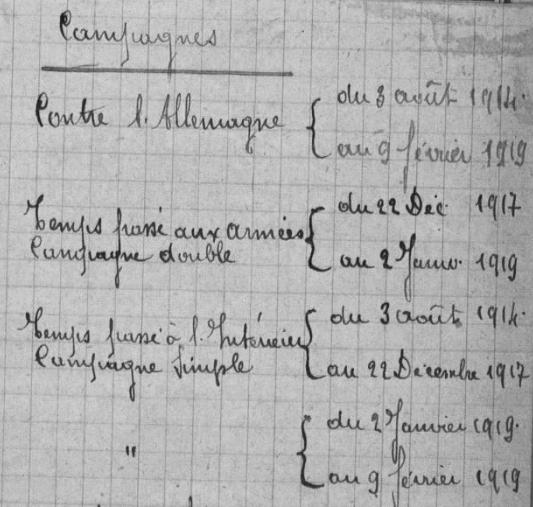 Campagnes
Contre l'Allemagne
du 3 août 1914.
au 9 février 1919
Temps passé aux armées
Campagne double
du 22 Déc. 1917
au 2 Janv. 1919
Temps passé à l'Intérieur
Campagne simple
du 3 août 1914.
au 22 Décembre 1917
"
du 2 Janvier 1919.
au 9 février 1919